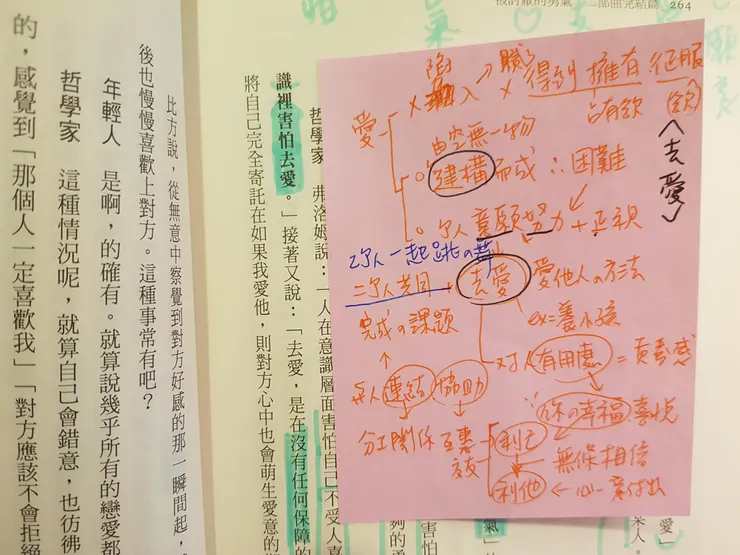 被討厭的勇氣 二部曲完結篇 264
的，感覺到「那個人一定喜歡我」「對方應該不會拒絕
哲學家 這種情況呢，就算自己會錯意，也彷彿
年輕人 是啊，的確有。就算說幾乎所有的戀愛都
後也慢慢喜歡上對方。這種事常有吧？
比方說，從無意中察覺到對方好感的那一瞬間起，
哲學家 弗洛姆說：「人在意識層面害怕自己不受人喜
識裡害怕去愛。」接著又說：「去愛，是在沒有任何保障的
將自己完全寄託在如果我愛他，則對方心中也會萌生愛意的
愛
陷入
得到 擁有 征服
占有欲
〈去愛〉
由空無一物
建構而成 ∴困難
個人意願努力+正視
2個人一起跳の舞
二個人共同
去愛 愛他人の方法
完成の課題
ex=養小孩
對人有用處 = 貢獻感
與人連結 協助
你の幸福、喜悅
分工關係 互惠
利己
無條相信
利他